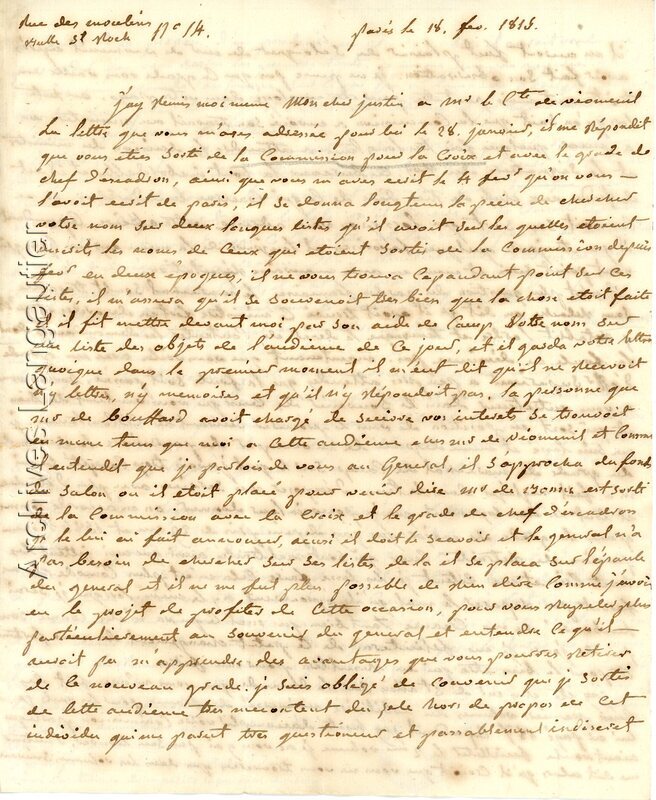 Rue des moulins
Butte St Roch N° 14.
paris le 18. fev. 1815.
j'ay remis moi meme Mon cher justin a mr le Cte de viomenil
La lettre que vous m'aves adressée pour lui le 28. janvier, il me repondit
que vous eties Sorti de la Commission pour la Croix et avec le grade de
chef d'escadron, ainsi que vous m'aves ecrit le 4 fevr qu'on vous
l'avoit ecrit de paris, il se donna longtems la peine de chercher
votre nom sur deux longues listes qu'il avoit sur les quelles etoient
inscrits les noms de Ceux qui etoient Sortis de la Commission depuis
fevr en deux époques, il ne vous trouva Cepandant point sur ces
listes, il m'assura qu'il se souvenoit tres bien que la chose etoit faite
il fit mettre devant moi par Son aide de Camp Votre nom sur
une liste des objets de l'audience de Ce jour, et il garda votre lettre
quoique dans le premier moment il m'eut dit qu'il ne recevoit
n'y lettres, n'y memoires et qu'il n'y repondoit pas, la personne que
mr de bouffard avoit chargé de suivre vos interets se trouvoit
en meme tems que moi a Cette audience ches mr de viomenil et Comme
il entendit que je parlois de vous au General, il s'approcha du fond
du Salon ou il etoit placé pour venir dire mr de bonne est sorti
de la Commission avec la Croix et le grade de chef d'escadron
je le lui ai fait annoncer, ainsi il doit le scavoir et le general n'a
pas besoin de chercher sur ses listes de la il se placa sur l'épaule
du general et il ne me fut plus possible de rien dire Comme j'avois
eu le projet de profiter de Cette occasion, pour vous rapeler plus
particulierement au Souvenir du general et entendre Ce qu'il
auroit pu m'apprendre des avantages que vous pourres retirer
de Ce nouveau grade. je suis obligé de Convenir que je sortis
de Cette audience tres mecontent du zele hors de propos de Cet
individu qui me parut tres questioneur et passablement indiscret
Archives Lancautier